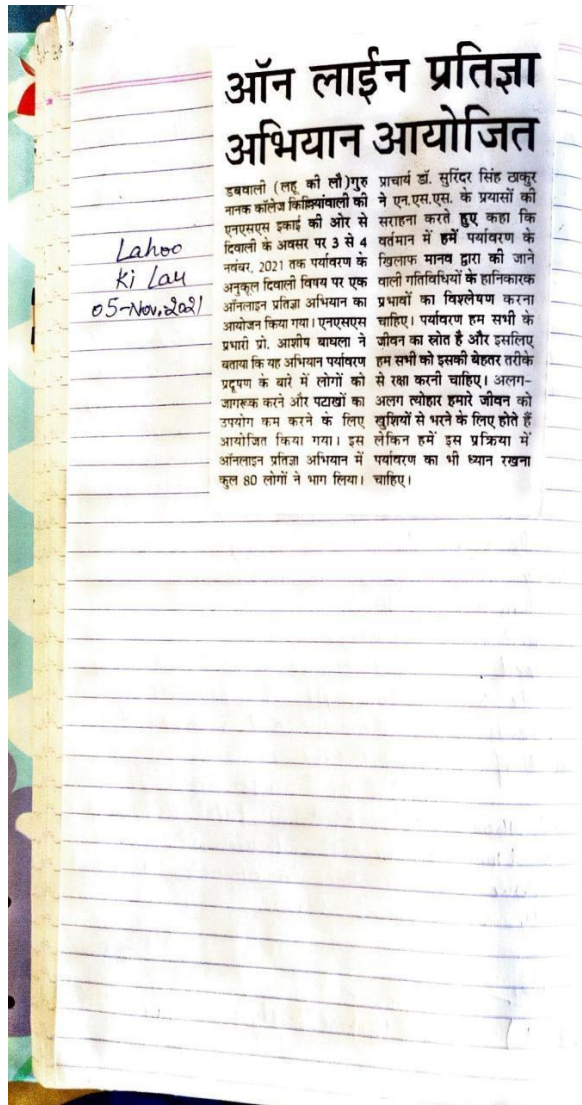 ऑन लाईन प्रतिज्ञा
अभियान आयोजित
Lahoo
Ki Lau
05-Nov.2021
डबवाली (लहू की लौ)गुरु
नानक कॉलेज किलियांवाली की
एनएसएस इकाई की ओर से
दिवाली के अवसर पर 3 से 4
नवंबर, 2021 तक पर्यावरण के
अनुकूल दिवाली विषय पर एक
ऑनलाइन प्रतिज्ञा अभियान का
आयोजन किया गया। एनएसएस
प्रभारी प्रो. आशीष बाघला ने
बताया कि यह अभियान पर्यावरण
प्रदूषण के बारे में लोगों को
जागरूक करने और पटाखों का
उपयोग कम करने के लिए
आयोजित किया गया। इस
ऑनलाइन प्रतिज्ञा अभियान में
कुल 80 लोगों ने भाग लिया।
प्राचार्य डॉ. सुरिंदर सिंह ठाकुर
ने एन.एस.एस. के प्रयासों की
सराहना करते हुए कहा कि
वर्तमान में हमें पर्यावरण के
खिलाफ मानव द्वारा की जाने
वाली गतिविधियों के हानिकारक
प्रभावों का विश्लेषण करना
चाहिए। पर्यावरण हम सभी के
जीवन का स्रोत है और इसलिए
हम सभी को इसकी बेहतर तरीके
से रक्षा करनी चाहिए। अलग-
अलग त्योहार हमारे जीवन को
खुशियों से भरने के लिए होते हैं
लेकिन हमें इस प्रक्रिया में
पर्यावरण का भी ध्यान रखना
चाहिए।